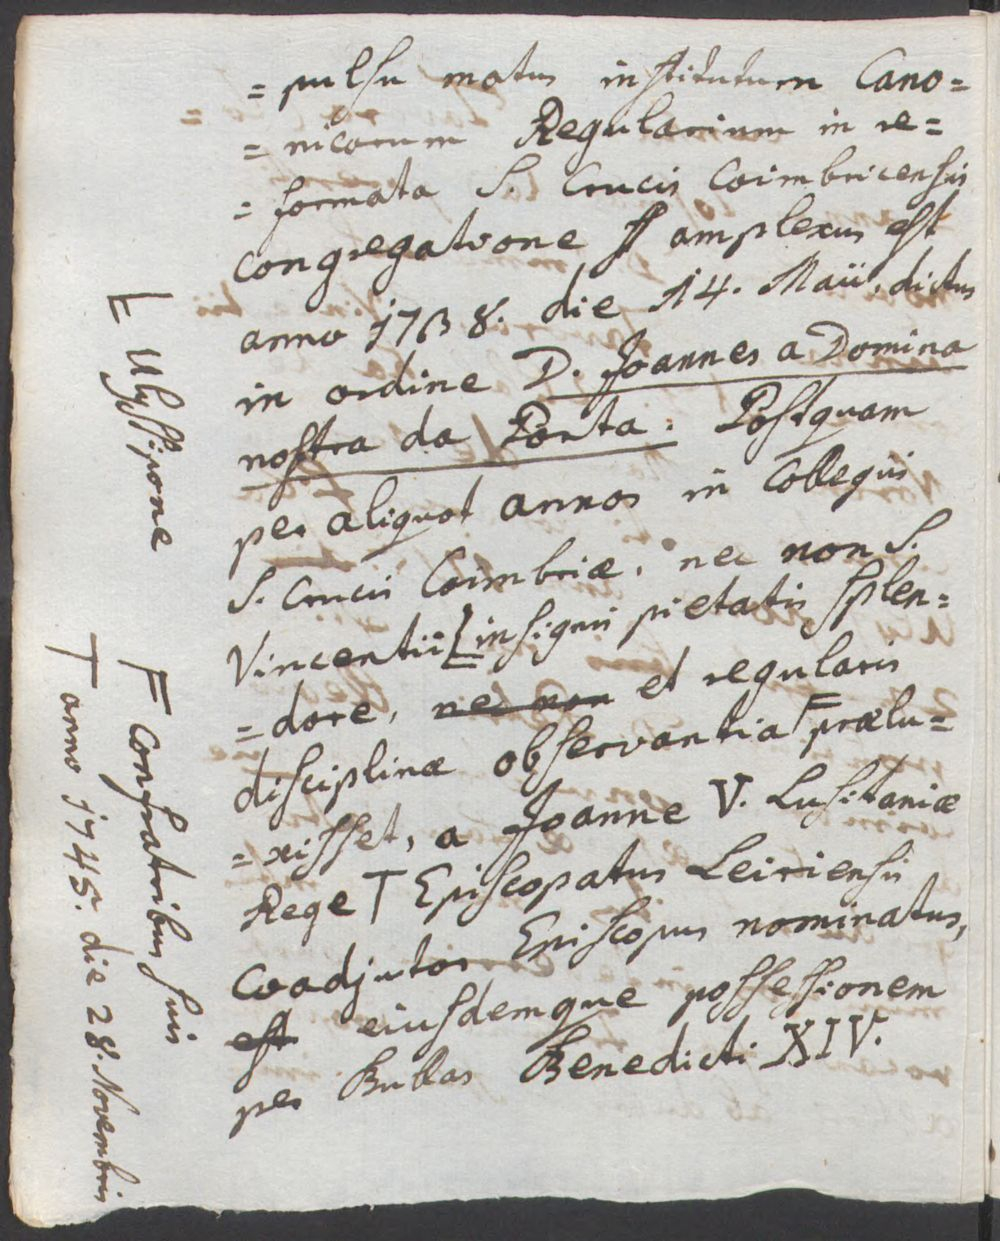 = pulsu motus institutum Cano=
= nicorum Regularium in re=
= formata S. Crucis Coimbricensis
congregatione amplexus est
anno 1738. die 14. Maii, dictus
in ordine D. Joannes a Domina
nostra da Porta. Postquam
per aliquot annos in Collegiis
S. Crucis Coimbriæ, nec non S.
Vincentii [ insigni pietatis splen=
= dore, nec non et regularis
disciplinæ observantia F prælu=
= xisset, a Joanne V. Lusitaniæ
Rege T Episcopatus Leiriensis
Coadjutor Episcopus nominatus,
est eiusdemque possessionem
per Bullas Benedicti XIV.
[ Ulyssipone
F Confratribus suis
T anno 1745. die 28. Novembris